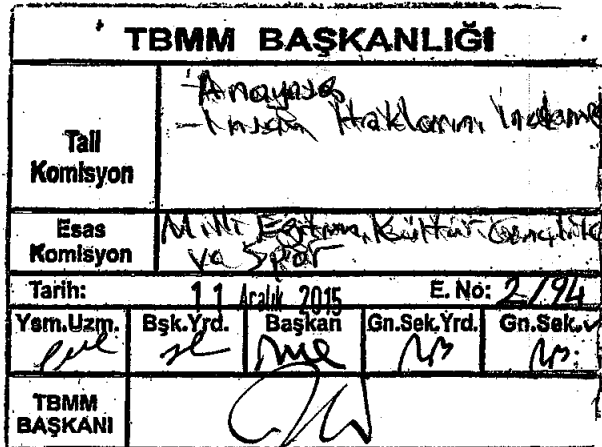 TBMM BAŞKANLIĞI
Tali
Komisyon
-Anayasa
-İnsan Haklarını İnceleme
Esas
Komisyon
Milli Eğitim, Kültür, Gençlik
ve Spor
Tarih: 11 Aralık 2015 E. No: 2/94
Ysm.Uzm. Bşk.Yrd. Başkan Gn.Sek.Yrd. Gn.Sek.
TBMM
BAŞKANI